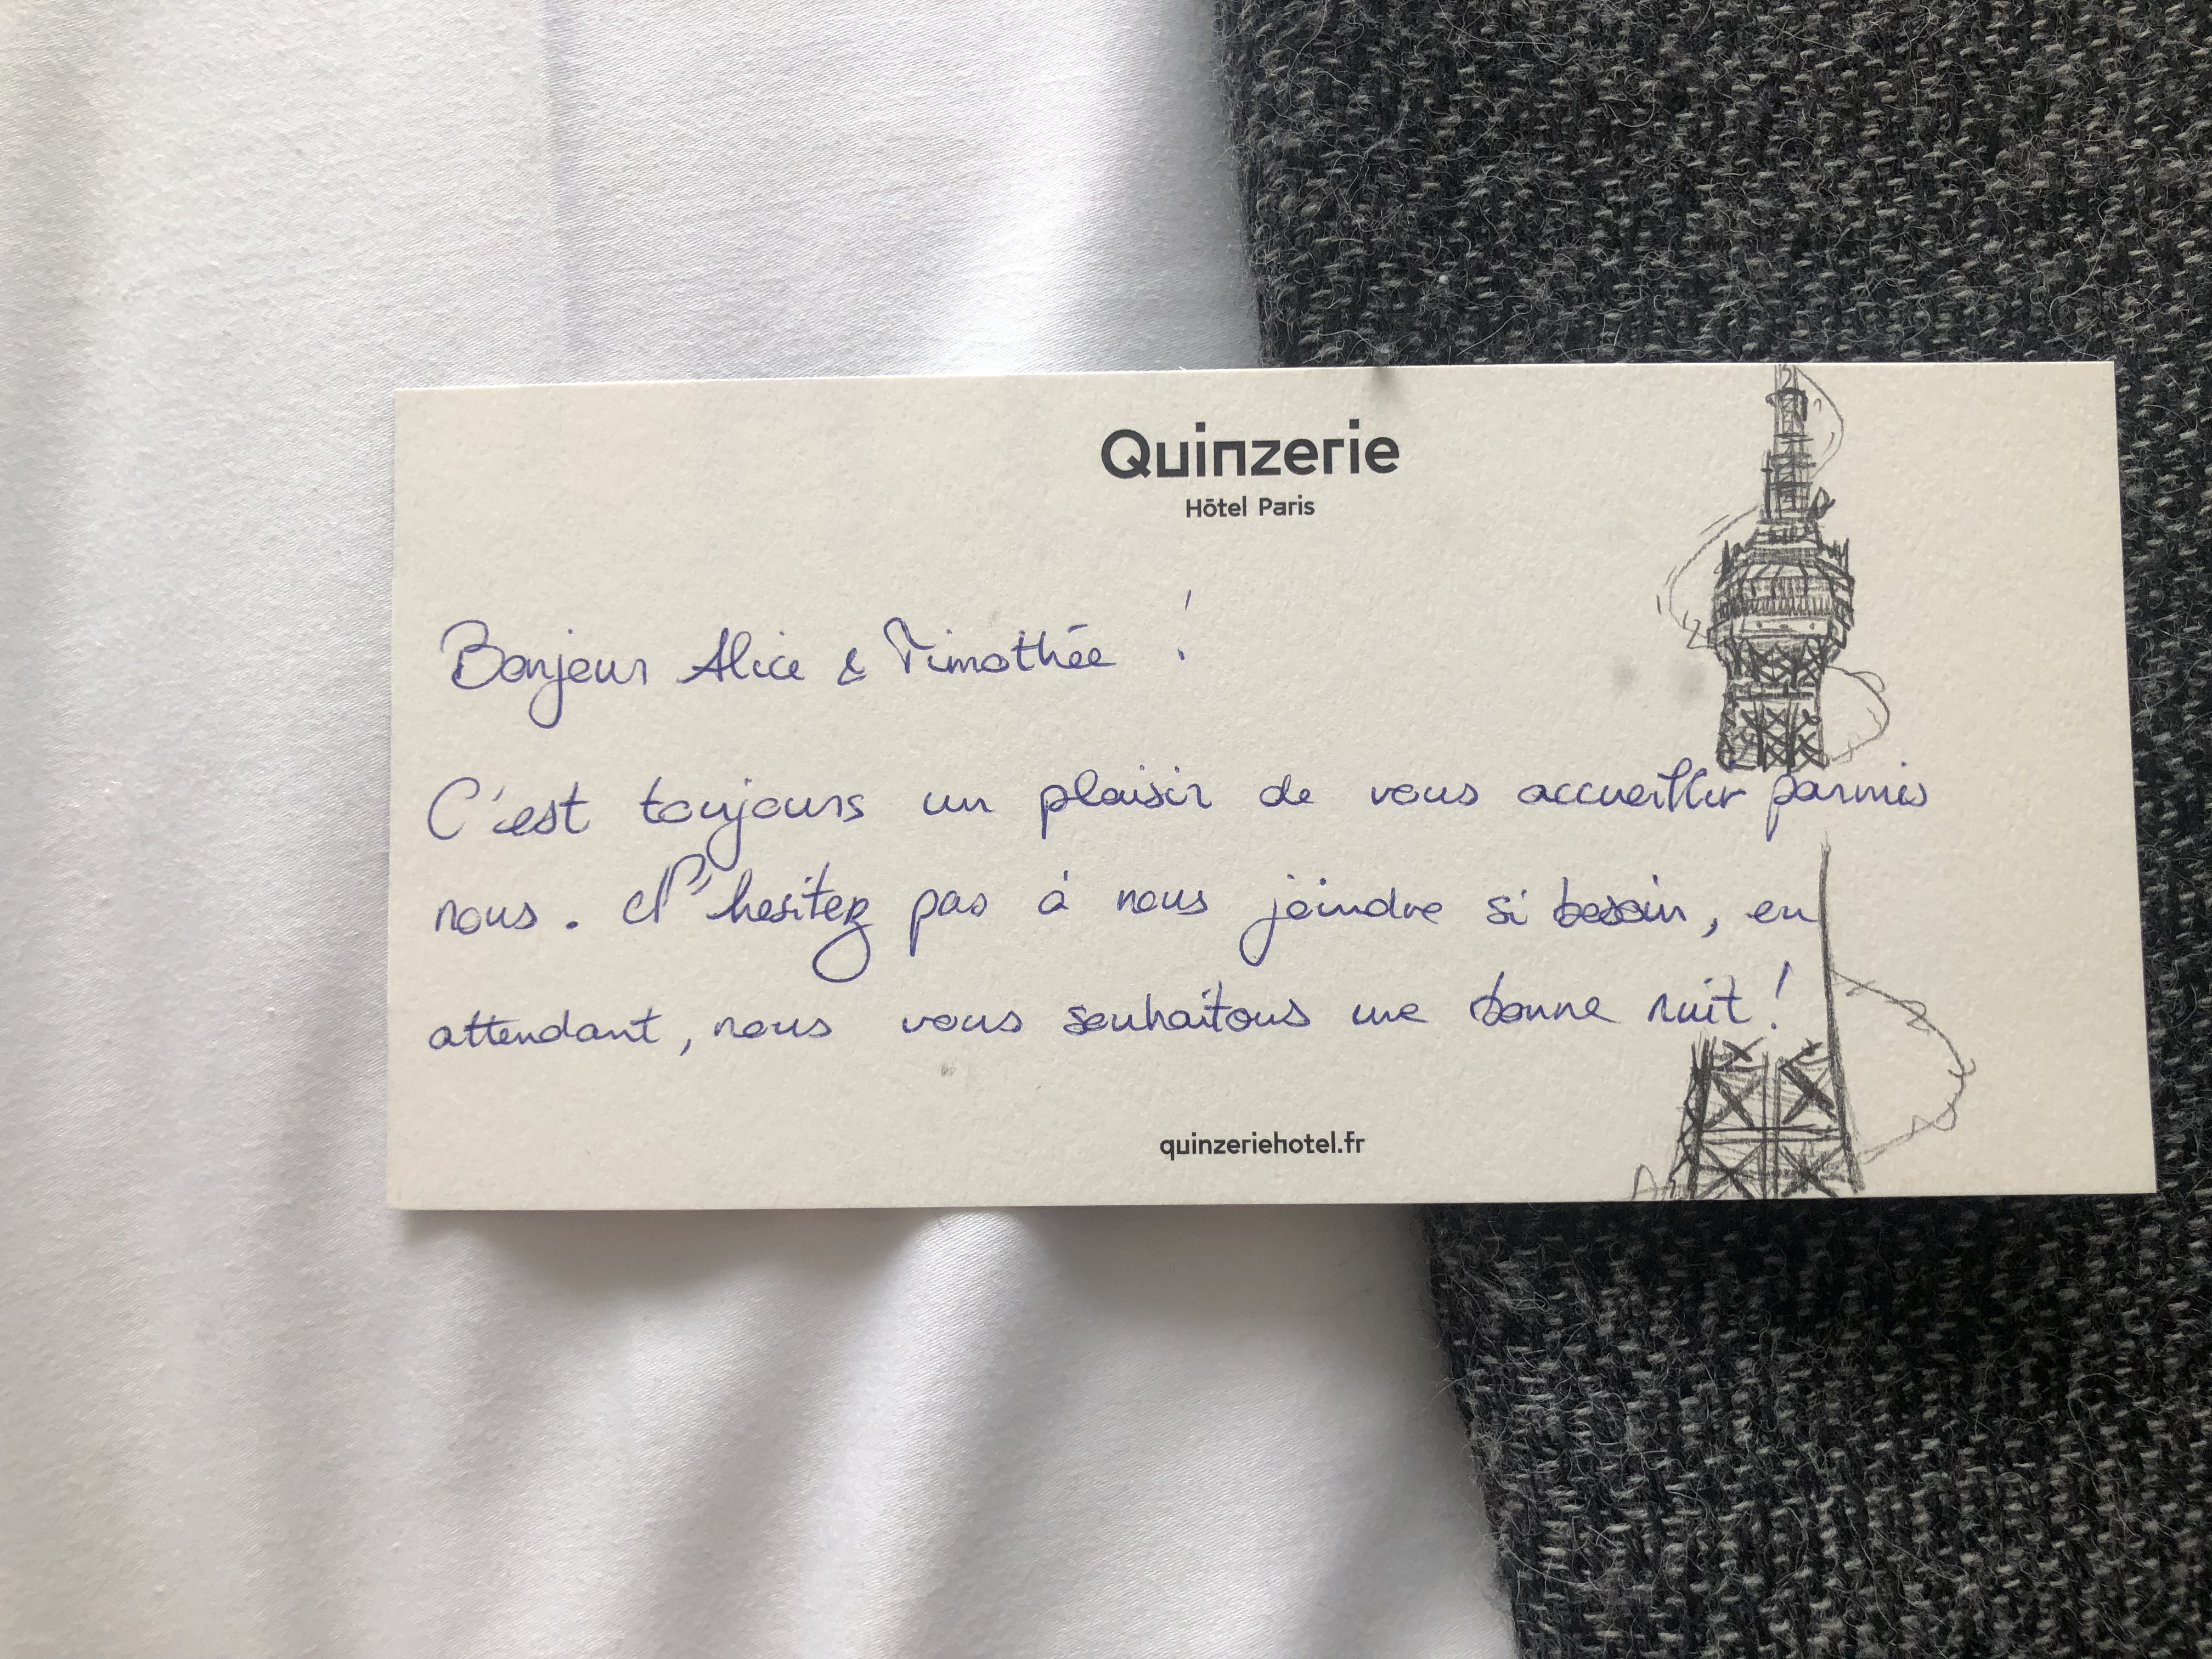 Quinzerie
Hôtel Paris
Bonjour Alice & Timothée !
C'est toujours un plaisir de vous accueillir parmis
nous. N'hesitez pas à nous joindre si besoin, en
attendant, nous vous souhaitons une bonne nuit !
quinzeriehotel.fr